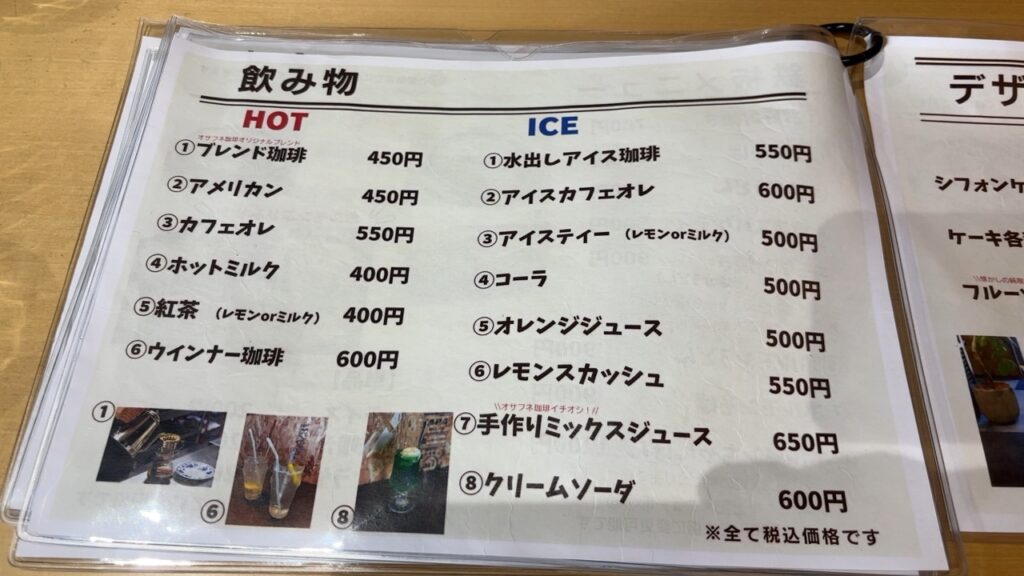 飲み物
HOT
オサフネ珈琲オリジナルブレンド
①ブレンド珈琲 450円
②アメリカン 450円
③カフェオレ 550円
④ホットミルク 400円
⑤紅茶 (レモンorミルク) 400円
⑥ウインナー珈琲 600円
①
⑥
⑧
ICE
①水出しアイス珈琲 550円
②アイスカフェオレ 600円
③アイスティー (レモンorミルク) 500円
④コーラ 500円
⑤オレンジジュース 500円
⑥レモンスカッシュ 550円
\\オサフネ珈琲イチオシ!//
⑦手作りミックスジュース 650円
⑧クリームソーダ 600円
※全て税込価格です
デザ
シフォンケ
ケーキ各
フルー